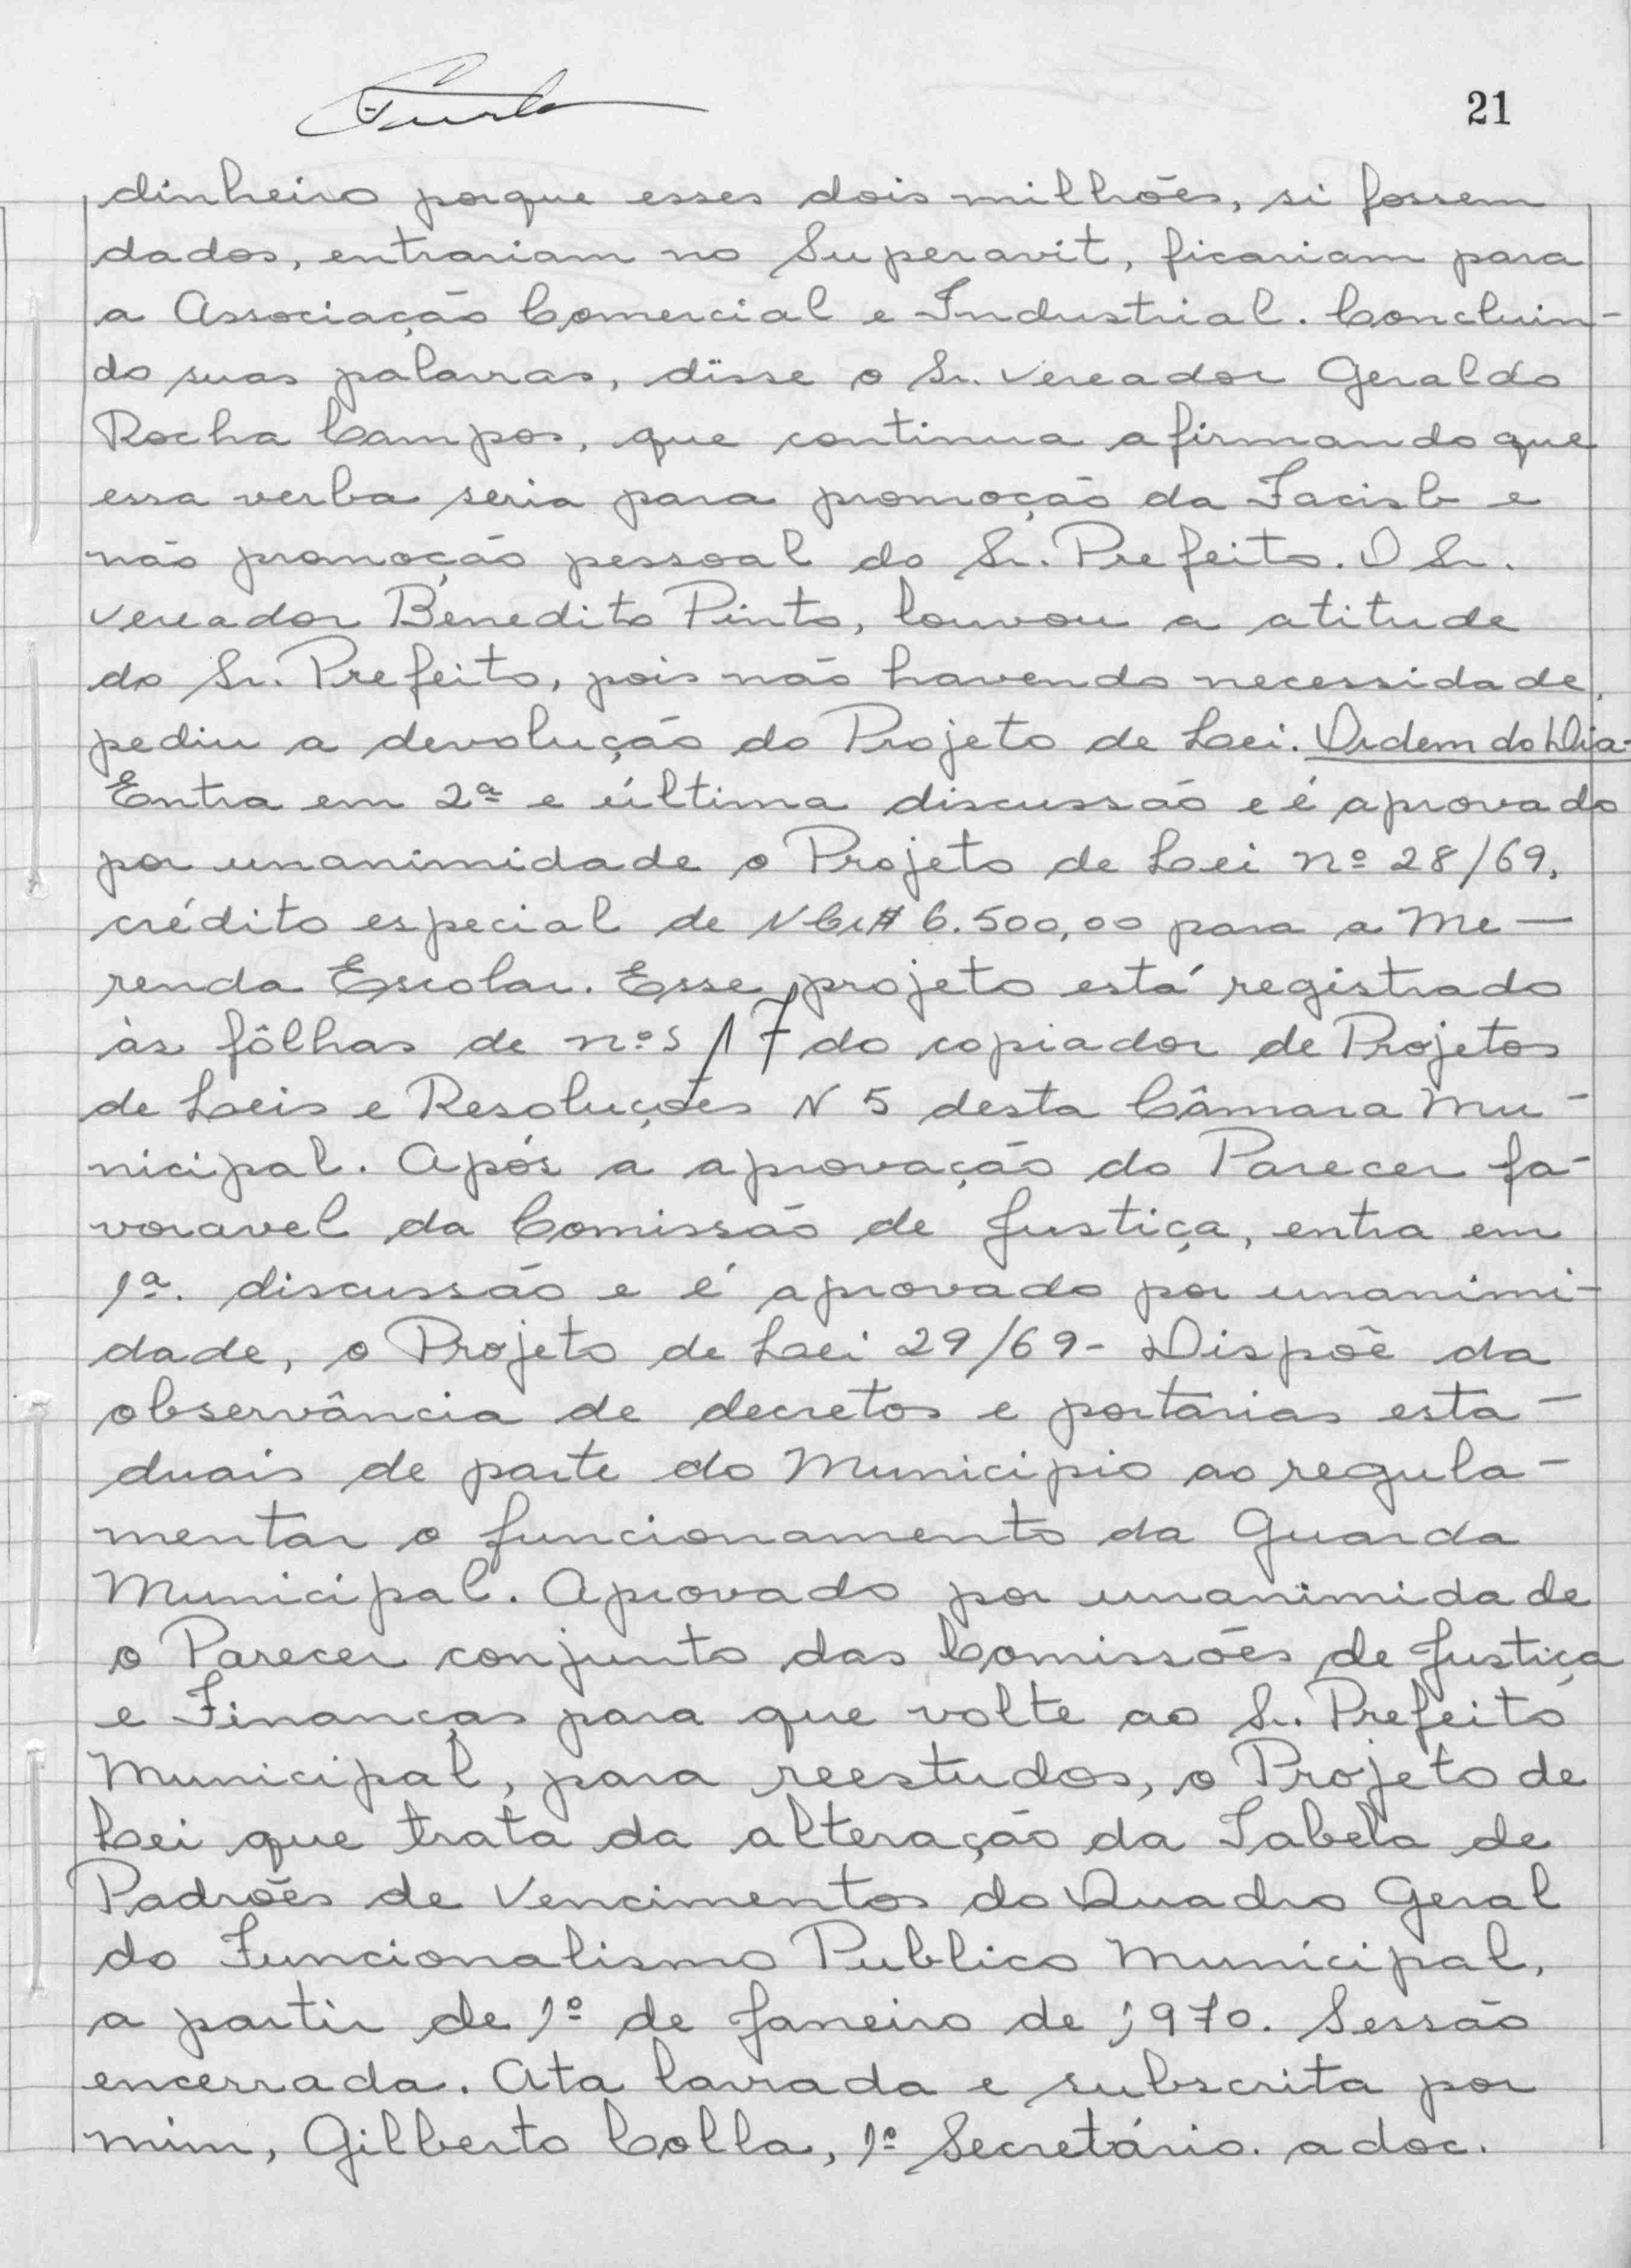 21
dinheiro porque esses dois milhões, si fossem
dados, entrariam no Superavit, ficariam para
a Associação Comercial e Industrial. Concluin-
do suas palavras, disse o Sr. Vereador Geraldo
Rocha Campos, que continua afirmando que
essa verba seria para promoção da Facisb e
não promoção pessoal do Sr. Prefeito. O Sr.
Vereador Benedito Pinto, louvou a atitude
do Sr. Prefeito, pois não havendo necessidade,
pediu a devolução do Projeto de Lei. Ordem do Dia-
Entra em 2ª e última discussão e é aprovado
por unanimidade o Projeto de Lei nº 28/69,
crédito especial de NCr$ 6.500,00 para a Me-
renda Escolar. Esse projeto está registrado
às fôlhas de nºs 17 do copiador de Projetos
de Leis e Resoluções N 5 desta Câmara Mu-
nicipal. Após a aprovação do Parecer fa-
voravel da Comissão de Justiça, entra em
1ª. discussão e é aprovado por unanimi-
dade, o Projeto de Lei 29/69- Dispõe da
observância de decretos e portarias esta-
duais de parte do Municipio ao regula-
mentar o funcionamento da Guarda
Municipal. Aprovado por unanimidade
o Parecer conjunto das Comissões de Justiça
e Finanças para que volte ao Sr. Prefeito
Municipal, para reestudos, o Projeto de
Lei que trata da alteração da Tabela de
Padrões de Vencimentos do Quadro Geral
do Funcionalismo Publico Municipal,
a partir de 1º de Janeiro de 1970. Sessão
encerrada. Ata lavrada e subscrita por
mim, Gilberto Colla, 1º Secretário. adoc.